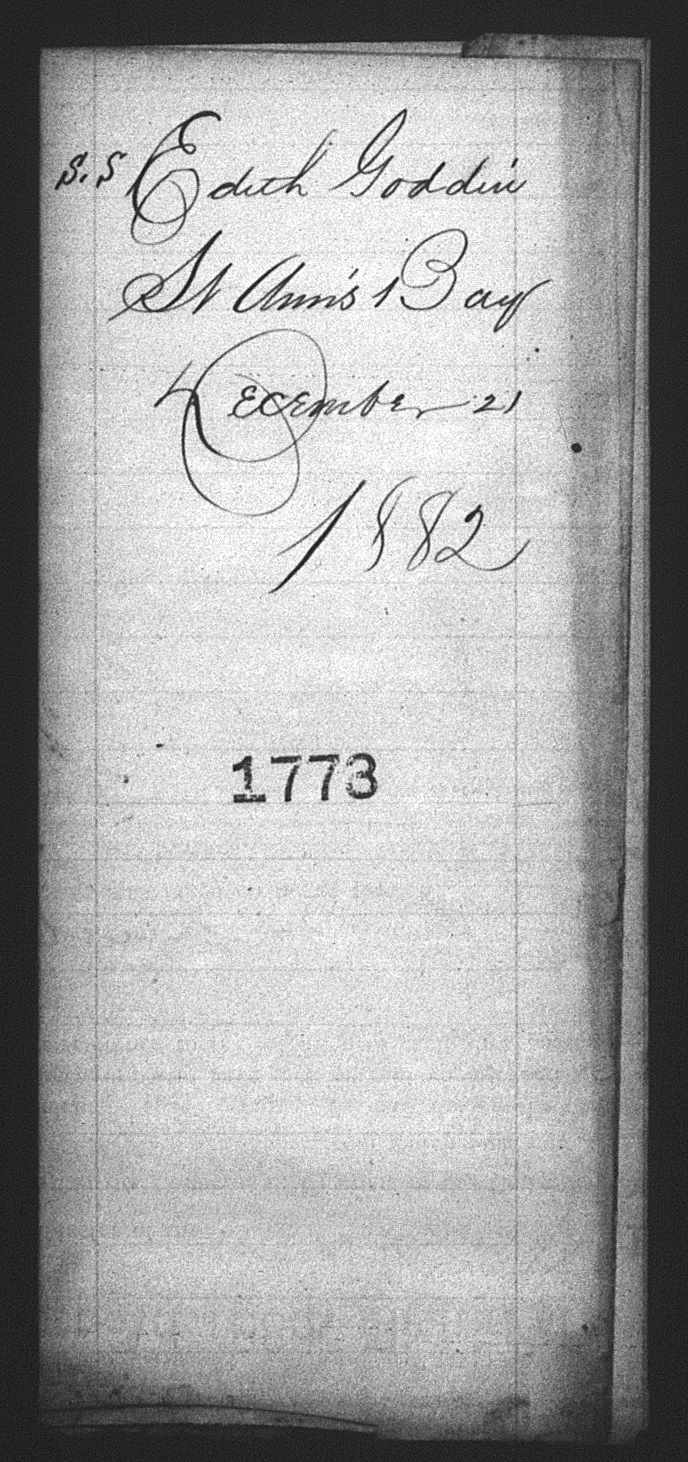 S.S Edith Godden
St Ann's Bay
December 21
1882
1773